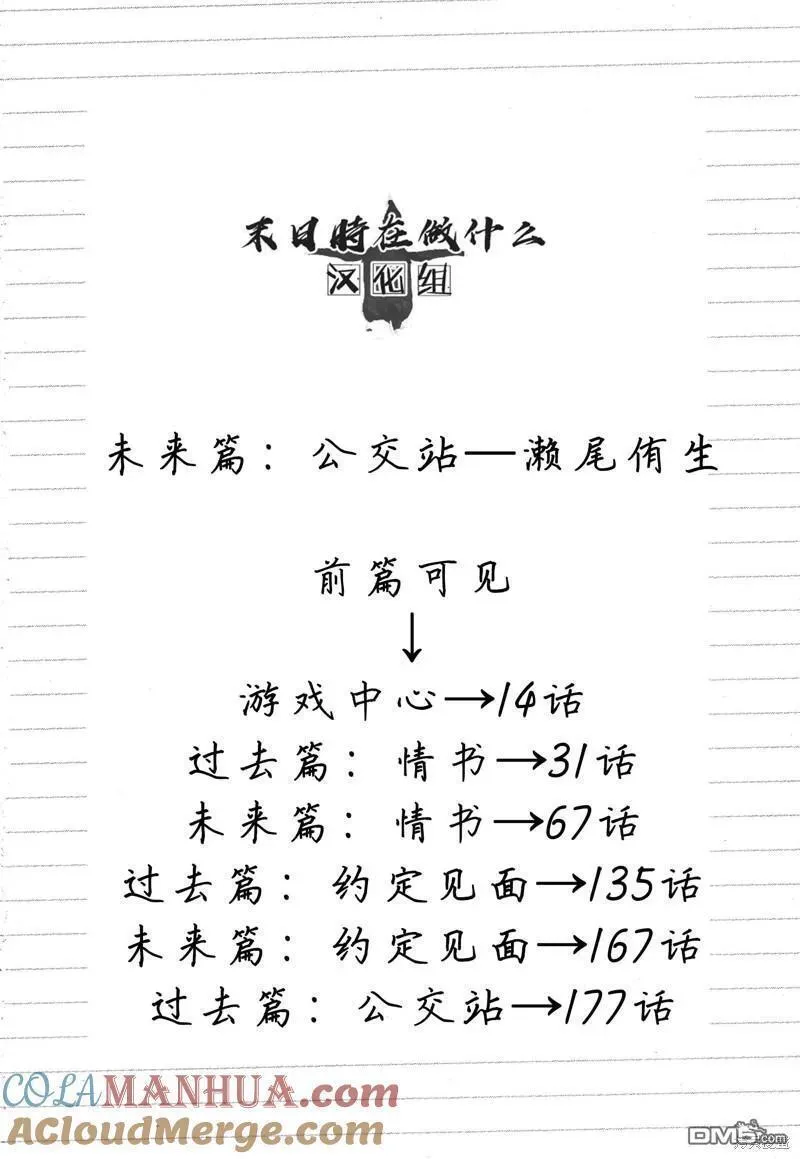 末日時在做什么
汉化组
未来篇：公交站—濑尾侑生
前篇可见
↓
游戏中心→14话
过去篇：情书→31话
未来篇：情书→67话
过去篇：约定见面→135话
未来篇：约定见面→167话
过去篇：公交站→177话
COLAMANHUA.com
AcloudMerge.com
DM5.com